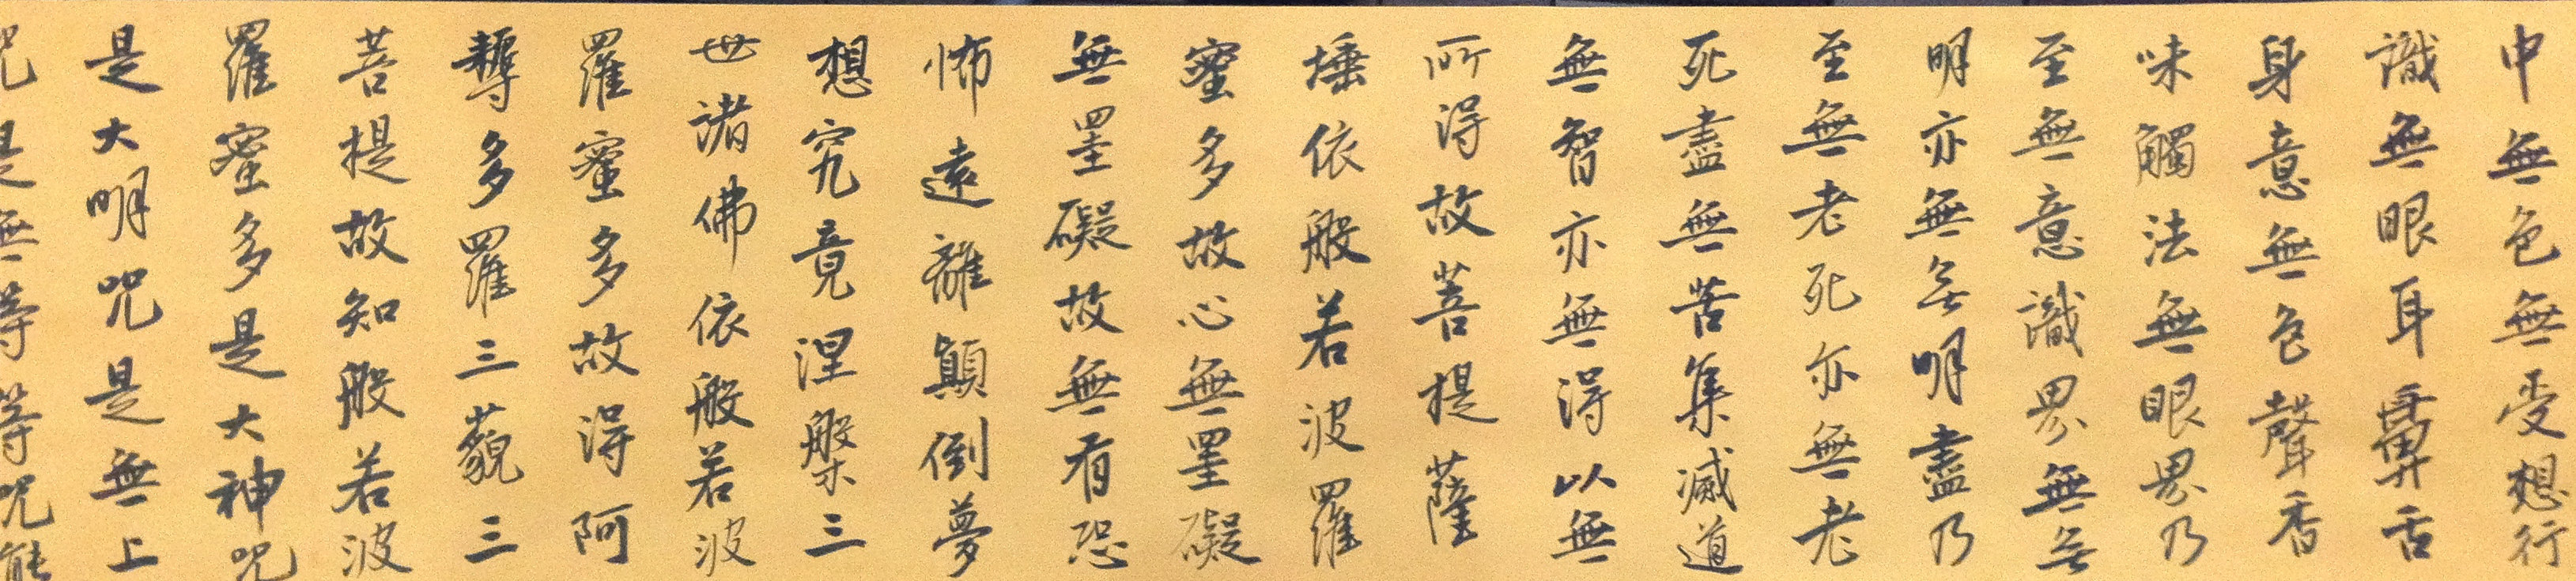 中無色無受想行
識無眼耳鼻舌
身意無色聲香
味觸法無眼界乃
至無意識界無無
明亦無無明盡乃
至無老死亦無老
死盡無苦集滅道
無智亦無得以無
所得故菩提薩
埵依般若波羅
蜜多故心無罣礙
無罣礙故無有恐
怖遠離顛倒夢
想究竟涅槃三
世諸佛依般若波
羅蜜多故得阿
耨多羅三藐三
菩提故知般若波
羅蜜多是大神咒
是大明咒是無上
咒是無等等咒能